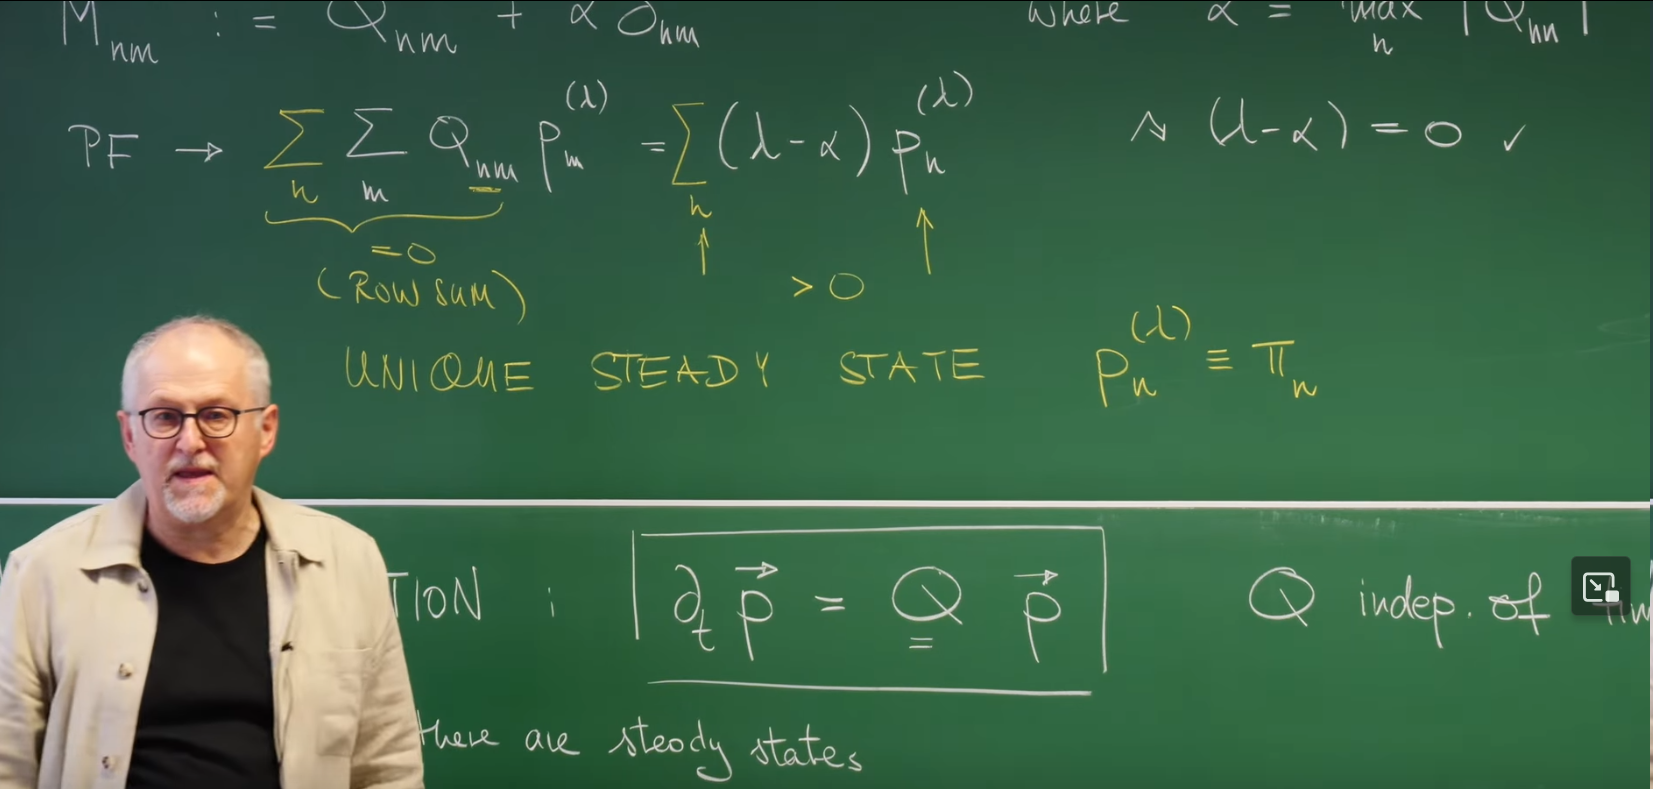 M_nm := Q_nm + α δ_nm where α = max_n |Q_nn|
PF → Σ_n Σ_m Q_nm p_m^(λ) = Σ_n (λ-α) p_n^(λ) ⇝ (λ-α) = 0 ✓
=0
(ROW SUM) > 0
UNIQUE STEADY STATE p_n^(λ) ≡ π_n
TION : ∂_t p⃗ = Q p⃗ Q indep. of
there are steady states